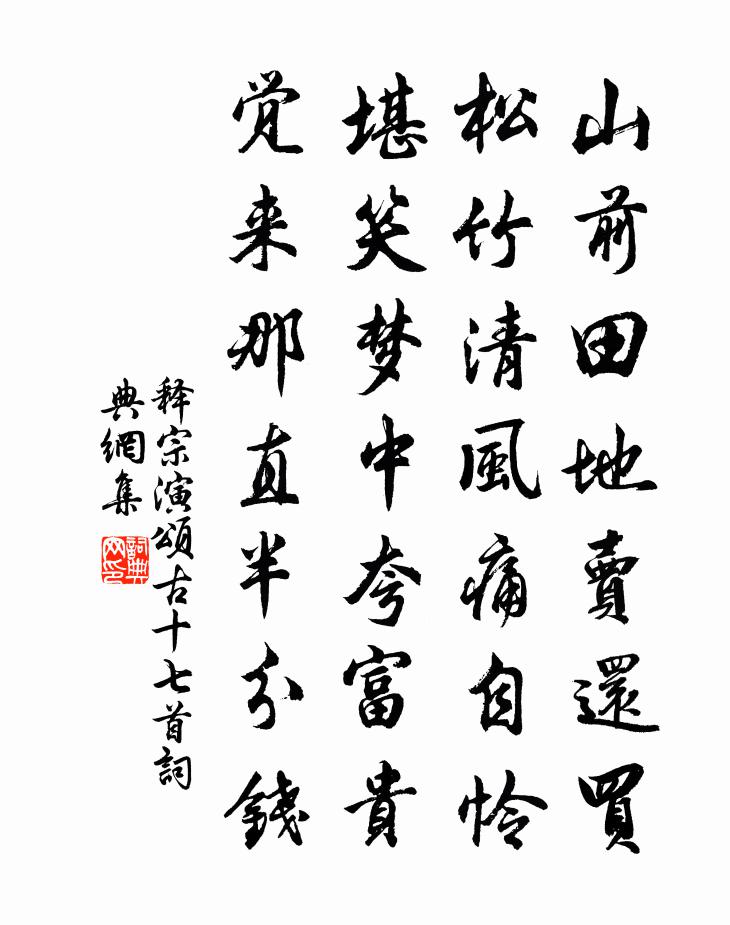 山前田地賣還買
松竹清風痛自怜
堪笑梦中夸富貴
觉来那直半分錢
释宗演頌古十七首詞
典網集
詞典
网印